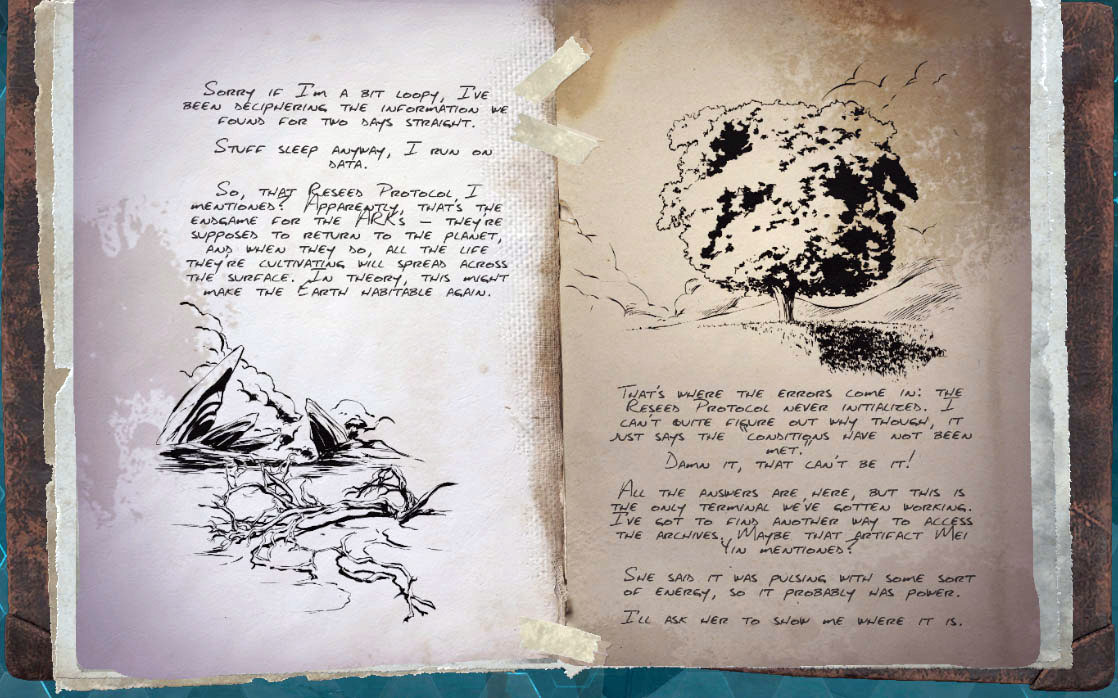 Sorry if I'm a bit loopy, I've
been deciphering the information we
found for two days straight.
Stuff sleep anyway, I run on
data.
So, that Reseed Protocol I
mentioned? Apparently, that's the
endgame for the ARKs – they're
supposed to return to the planet,
and when they do, all the life
they're cultivating will spread across
the surface. In theory, this might
make the Earth habitable again.
That's where the errors come in: the
Reseed Protocol never initialized. I
can't quite figure out why though, it
just says the "conditions have not been
met."
Damn it, that can't be it!
All the answers are here, but this is
the only terminal we've gotten working.
I've got to find another way to access
the archives. Maybe that artifact Mei
Yin mentioned?
She said it was pulsing with some sort
of energy, so it probably has power.
I'll ask her to show me where it is.